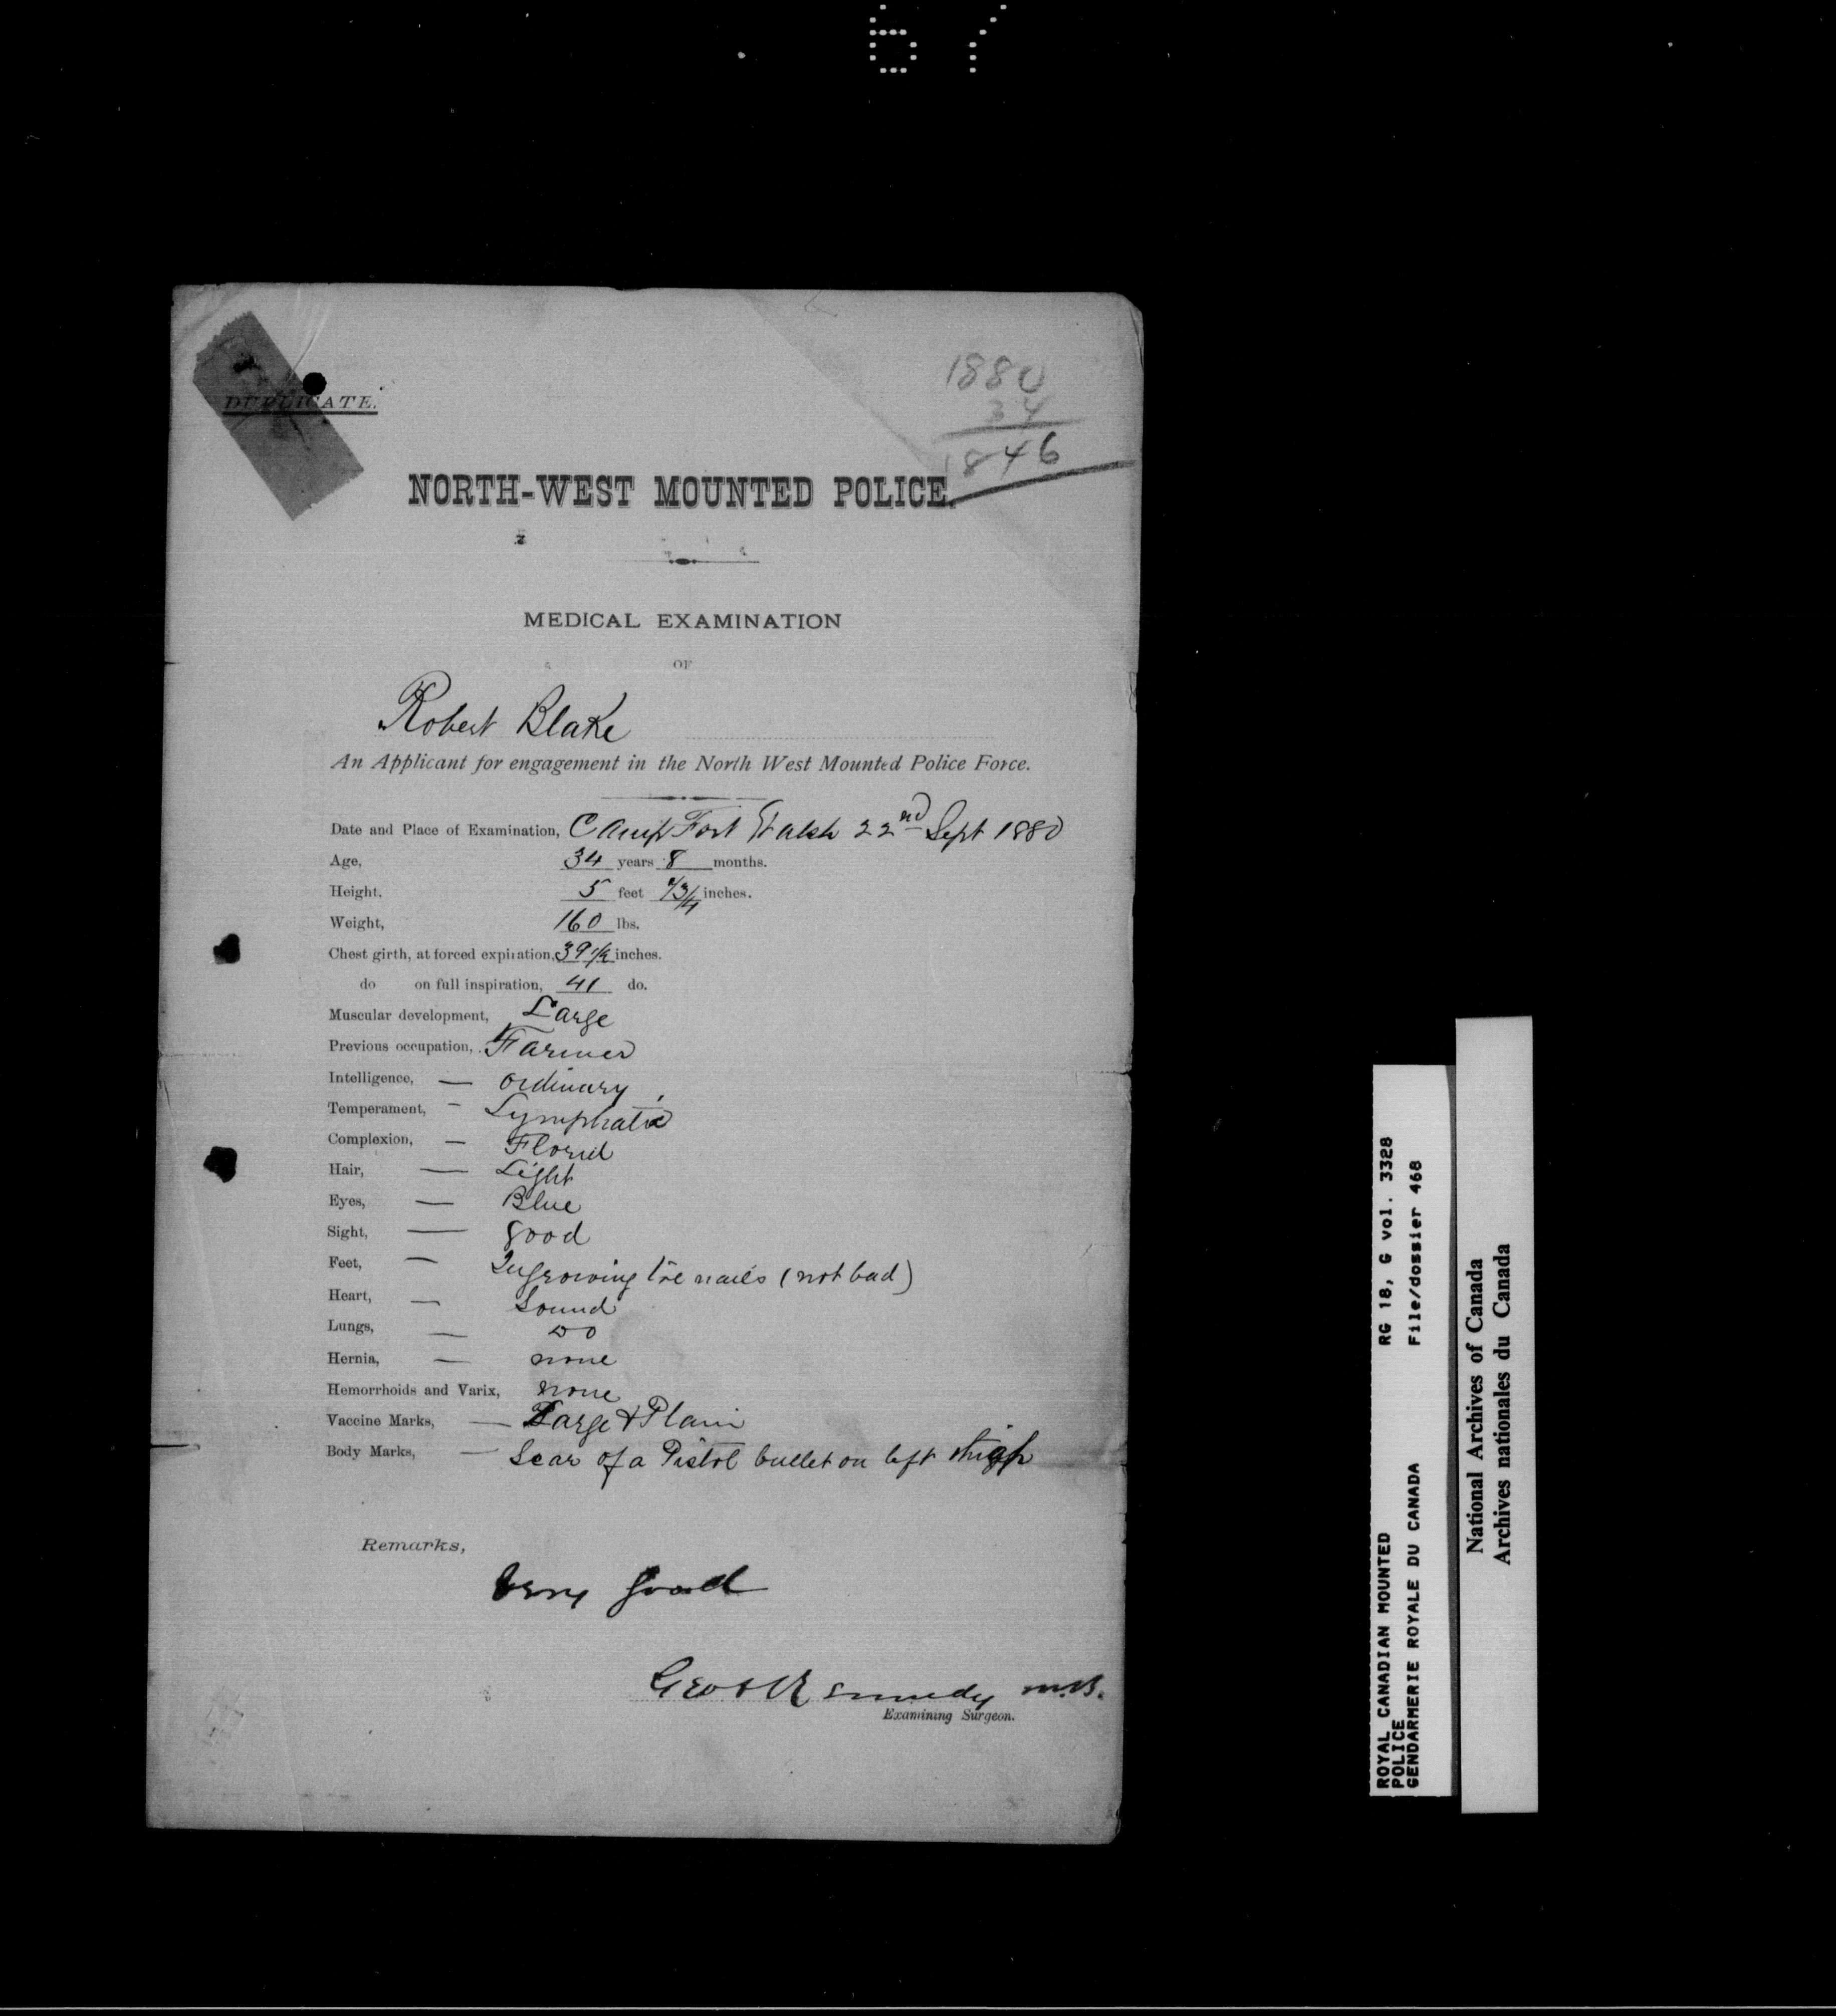 DUPLICATE.
1880
34
1846
NORTH-WEST MOUNTED POLICE.
MEDICAL EXAMINATION
OF
Robert Blake
An Applicant for engagement in the North West Mounted Police Force.
Date and Place of Examination, Camp Fort Walsh 22nd Sept 1880
Age, 34 years 8 months.
Height. 5 feet 7 3/4 inches.
Weight, 160 lbs.
Chest girth, at forced expiration, 39 1/2 inches.
do on full inspiration, 41 do.
Muscular development, Large
Previous occupation, Farmer
Intelligence, — ordinary
Temperament, — Lymphatic
Complexion, — Florid
Hair, — Light
Eyes, — Blue
Sight, — good
Feet, — Ingrowing toe nails (not bad)
Heart, — Sound
Lungs, — Do
Hernia, — none
Hemorrhoids and Varix, none
Vaccine Marks, — Large & Plain
Body Marks, — Scar of a Pistol bullet on left thigh
Remarks,
Very good
Geo A Kennedy M.B.
Examining Surgeon.
ROYAL CANADIAN MOUNTED RG 18, G vol. 3328
POLICE
GENDARMERIE ROYALE DU CANADA File/dossier 468
National Archives of Canada
Archives nationales du Canada